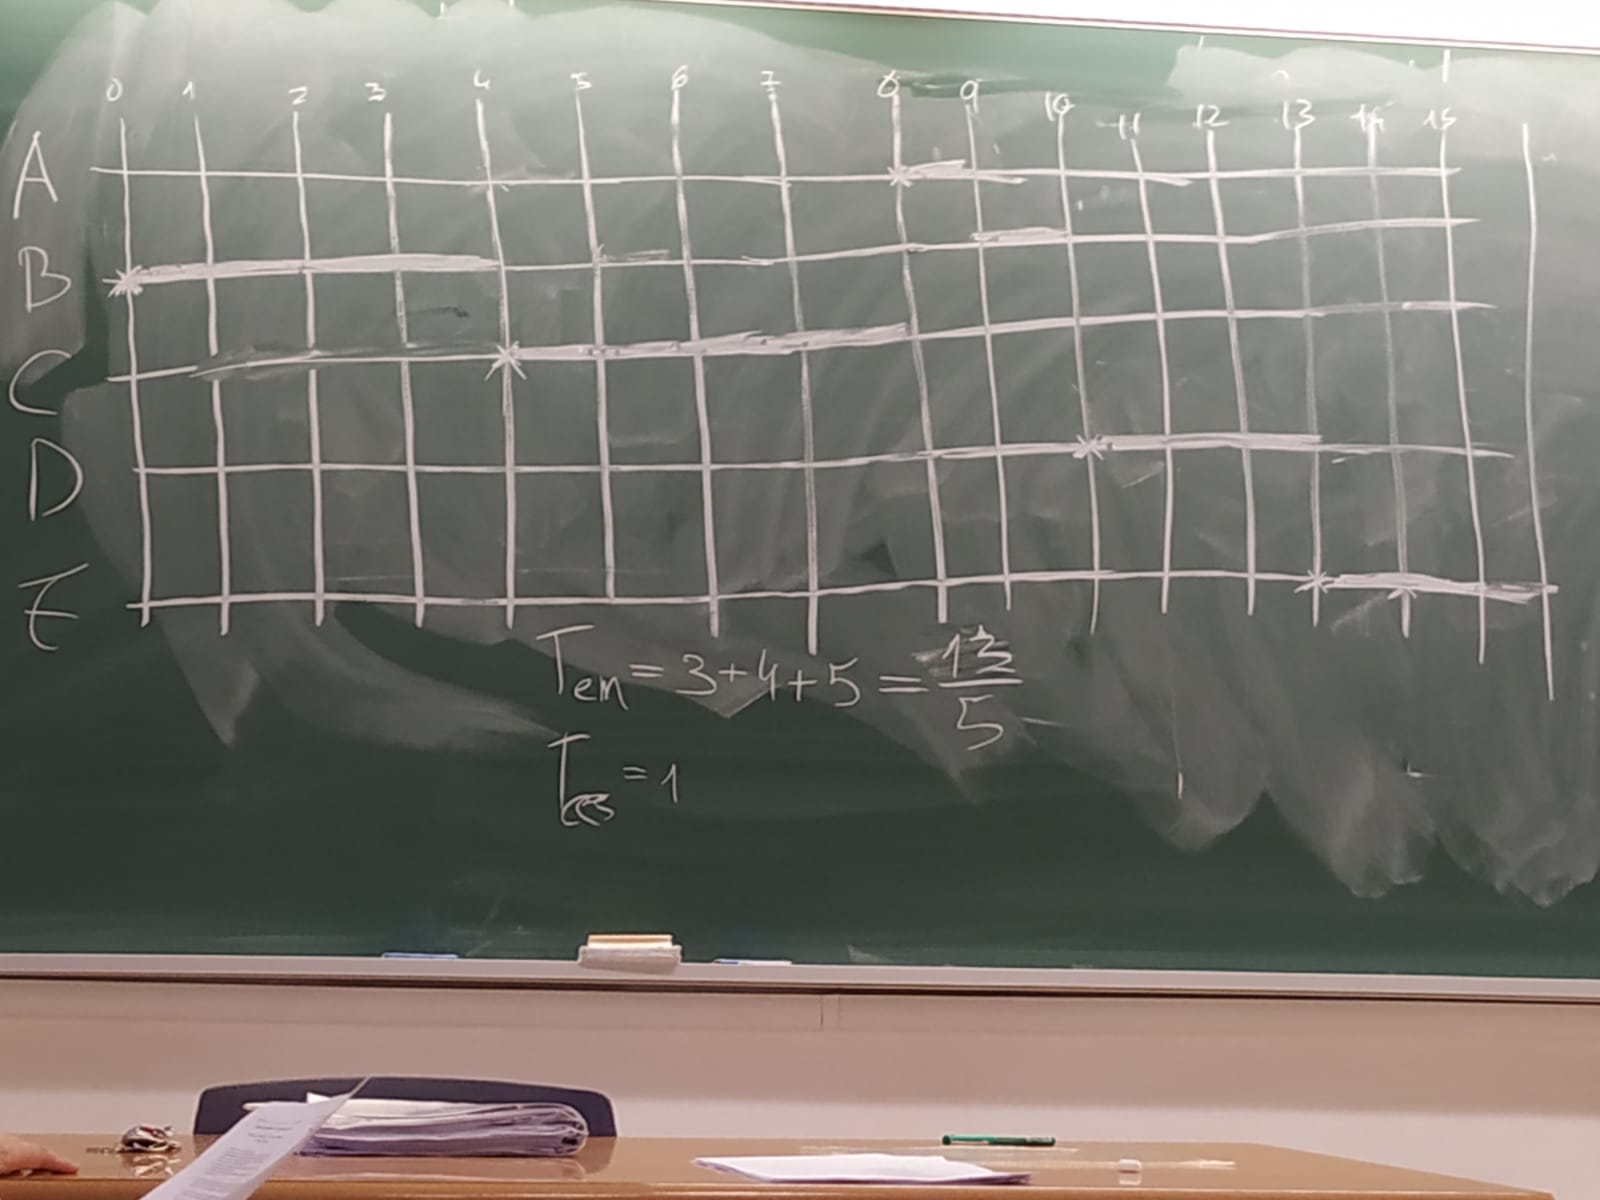 0 1 2 3 4 5 6 7 8 9 10 11 12 13 14 15
A
B
C
D
E
Tem = 3+4+5 = 12/5
= 1